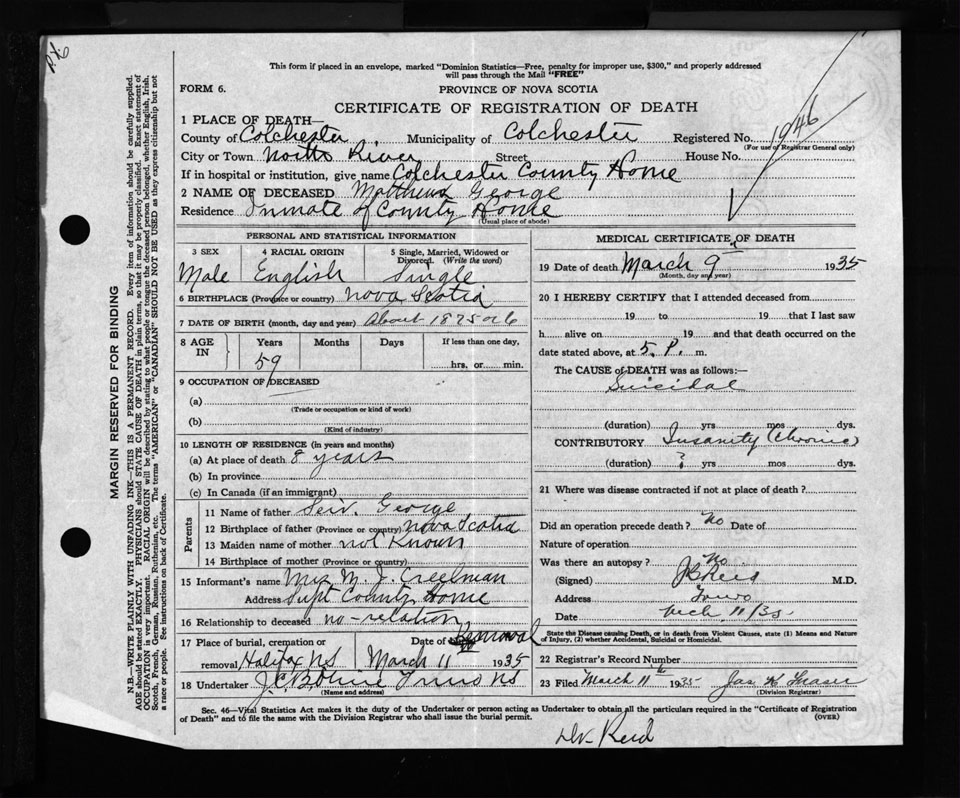 This form if placed in an envelope, marked "Dominion Statistics—Free, penalty for improper use, $300," and properly addressed
will pass through the Mail "FREE"
FORM 6.
PROVINCE OF NOVA SCOTIA
CERTIFICATE OF REGISTRATION OF DEATH
1946
1 PLACE OF DEATH—
County of Colchester Municipality of Colchester Registered No.
(For use of Registrar General only)
City or Town North River Street House No.
If in hospital or institution, give name Colchester County Home
2 NAME OF DECEASED Matthew George
Residence Inmate of County Home
(Usual place of abode)
PERSONAL AND STATISTICAL INFORMATION
3 SEX 4 RACIAL ORIGIN 5 Single, Married, Widowed or
Divorced. (Write the word)
Male English Single
6 BIRTHPLACE (Province or country) Nova Scotia
7 DATE OF BIRTH (month, day and year) About 1875 or 6
8 AGE IN Years Months Days If less than one day,
59 hrs. or min.
9 OCCUPATION OF DECEASED
(a)
(Trade or occupation or kind of work)
(b)
(Kind of industry)
10 LENGTH OF RESIDENCE (in years and months)
(a) At place of death 8 years
(b) In province
(c) In Canada (if an immigrant)
Parents
11 Name of father George
12 Birthplace of father (Province or country) Nova Scotia
13 Maiden name of mother not Known
14 Birthplace of mother (Province or country)
15 Informant's name Mrs M. J. Creelman
Address Supt County Home
16 Relationship to deceased no-relation
17 Place of burial, cremation or Date of Removal
removal Halifax NS March 11 1935
18 Undertaker J. C. Truro NS
(Name and address)
MEDICAL CERTIFICATE OF DEATH
19 Date of death March 9 1935
(Month, day and year)
20 I HEREBY CERTIFY that I attended deceased from
19 to 19 that I last saw
h alive on 19 and that death occurred on
date stated above, at 5. P. m.
The CAUSE of DEATH was as follows:—
Suicidal
(duration) yrs mos dys.
CONTRIBUTORY Insanity (Chronic)
(duration) ? yrs mos dys.
21 Where was disease contracted if not at place of death?
Did an operation precede death? No Date of
Nature of operation
Was there an autopsy? No
(Signed) M.D.
Address Truro
Date Mch 11/35
State the Disease causing Death, or in death from Violent Causes, state (1) Means and Nature
of Injury, (2) whether Accidental, Suicidal or Homicidal.
22 Registrar's Record Number
23 Filed March 11th 1935 Jas K Fraser
(Division Registrar)
Sec. 46—Vital Statistics Act makes it the duty of the Undertaker or person acting as Undertaker to obtain all the particulars required in the "Certificate of Registration
of Death" and to file the same with the Division Registrar who shall issue the burial permit.
(OVER)
Dr. Reid
MARGIN RESERVED FOR BINDING
N.B.—WRITE PLAINLY WITH UNFADING INK—THIS IS A PERMANENT RECORD. Every item of information should be carefully supplied.
AGE should be stated EXACTLY. PHYSICIANS should STATE CAUSE OF DEATH in plain terms, so that it may be properly classified. Exact statement of
OCCUPATION is very important. RACIAL ORIGIN will be described by stating to what people or tongue the deceased person belonged, whether English, Irish,
Scotch, French, German, Russian, Ruthenian, etc. The terms "AMERICAN" or "CANADIAN" SHOULD NOT BE USED as they express citizenship but not
a race or people. See instructions on back of Certificate.